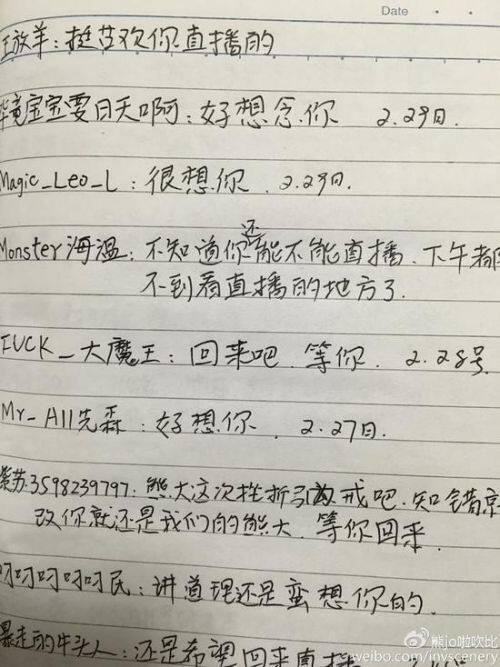 Date
王放羊：挺喜欢你直播的
毕竟宝宝要日天啊啊：好想念你 2.29日.
Magic_Leo_L：很想你. 2.29日.
Monster海温：不知道你还能不能直播、下午都
不到看直播的地方了
FUCK_大魔王：回来吧、等你. 2.28号
Mr_All先森：好想你. 2.27日.
紫苏3598239797：熊大这次挫折引以为戒吧、知错
改你就还是我们的熊大、等你回来.
叼叼叼叼叼民：讲道理还是蛮想你的.
暴走的牛头人：还是希望回来直播
熊jo啪吹比
weibo.com/invscenery